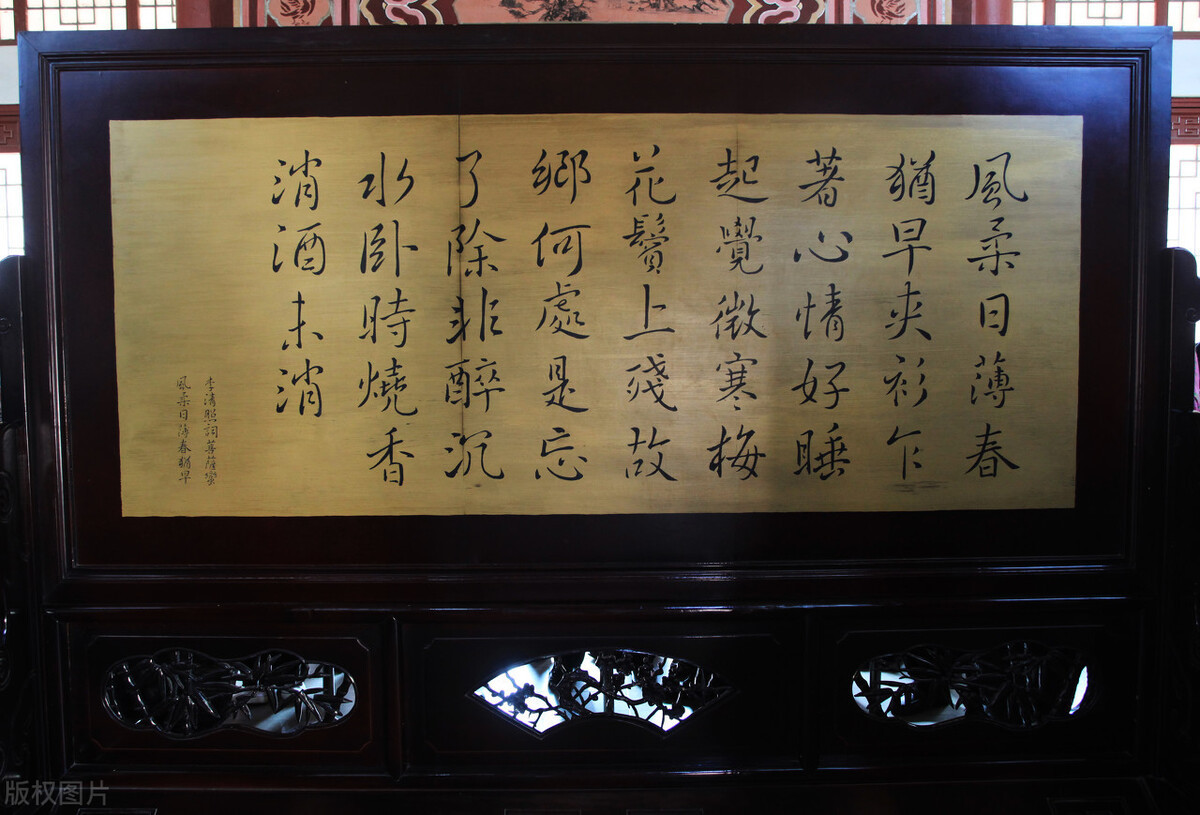 風柔日薄春
猶早夾衫乍
著心情好睡
起覺微寒梅
花鬢上殘故
鄉何處是忘
了除非醉沉
水卧時燒香
消酒未消
李清照詞菩薩蠻
風柔日薄春猶早
版权图片